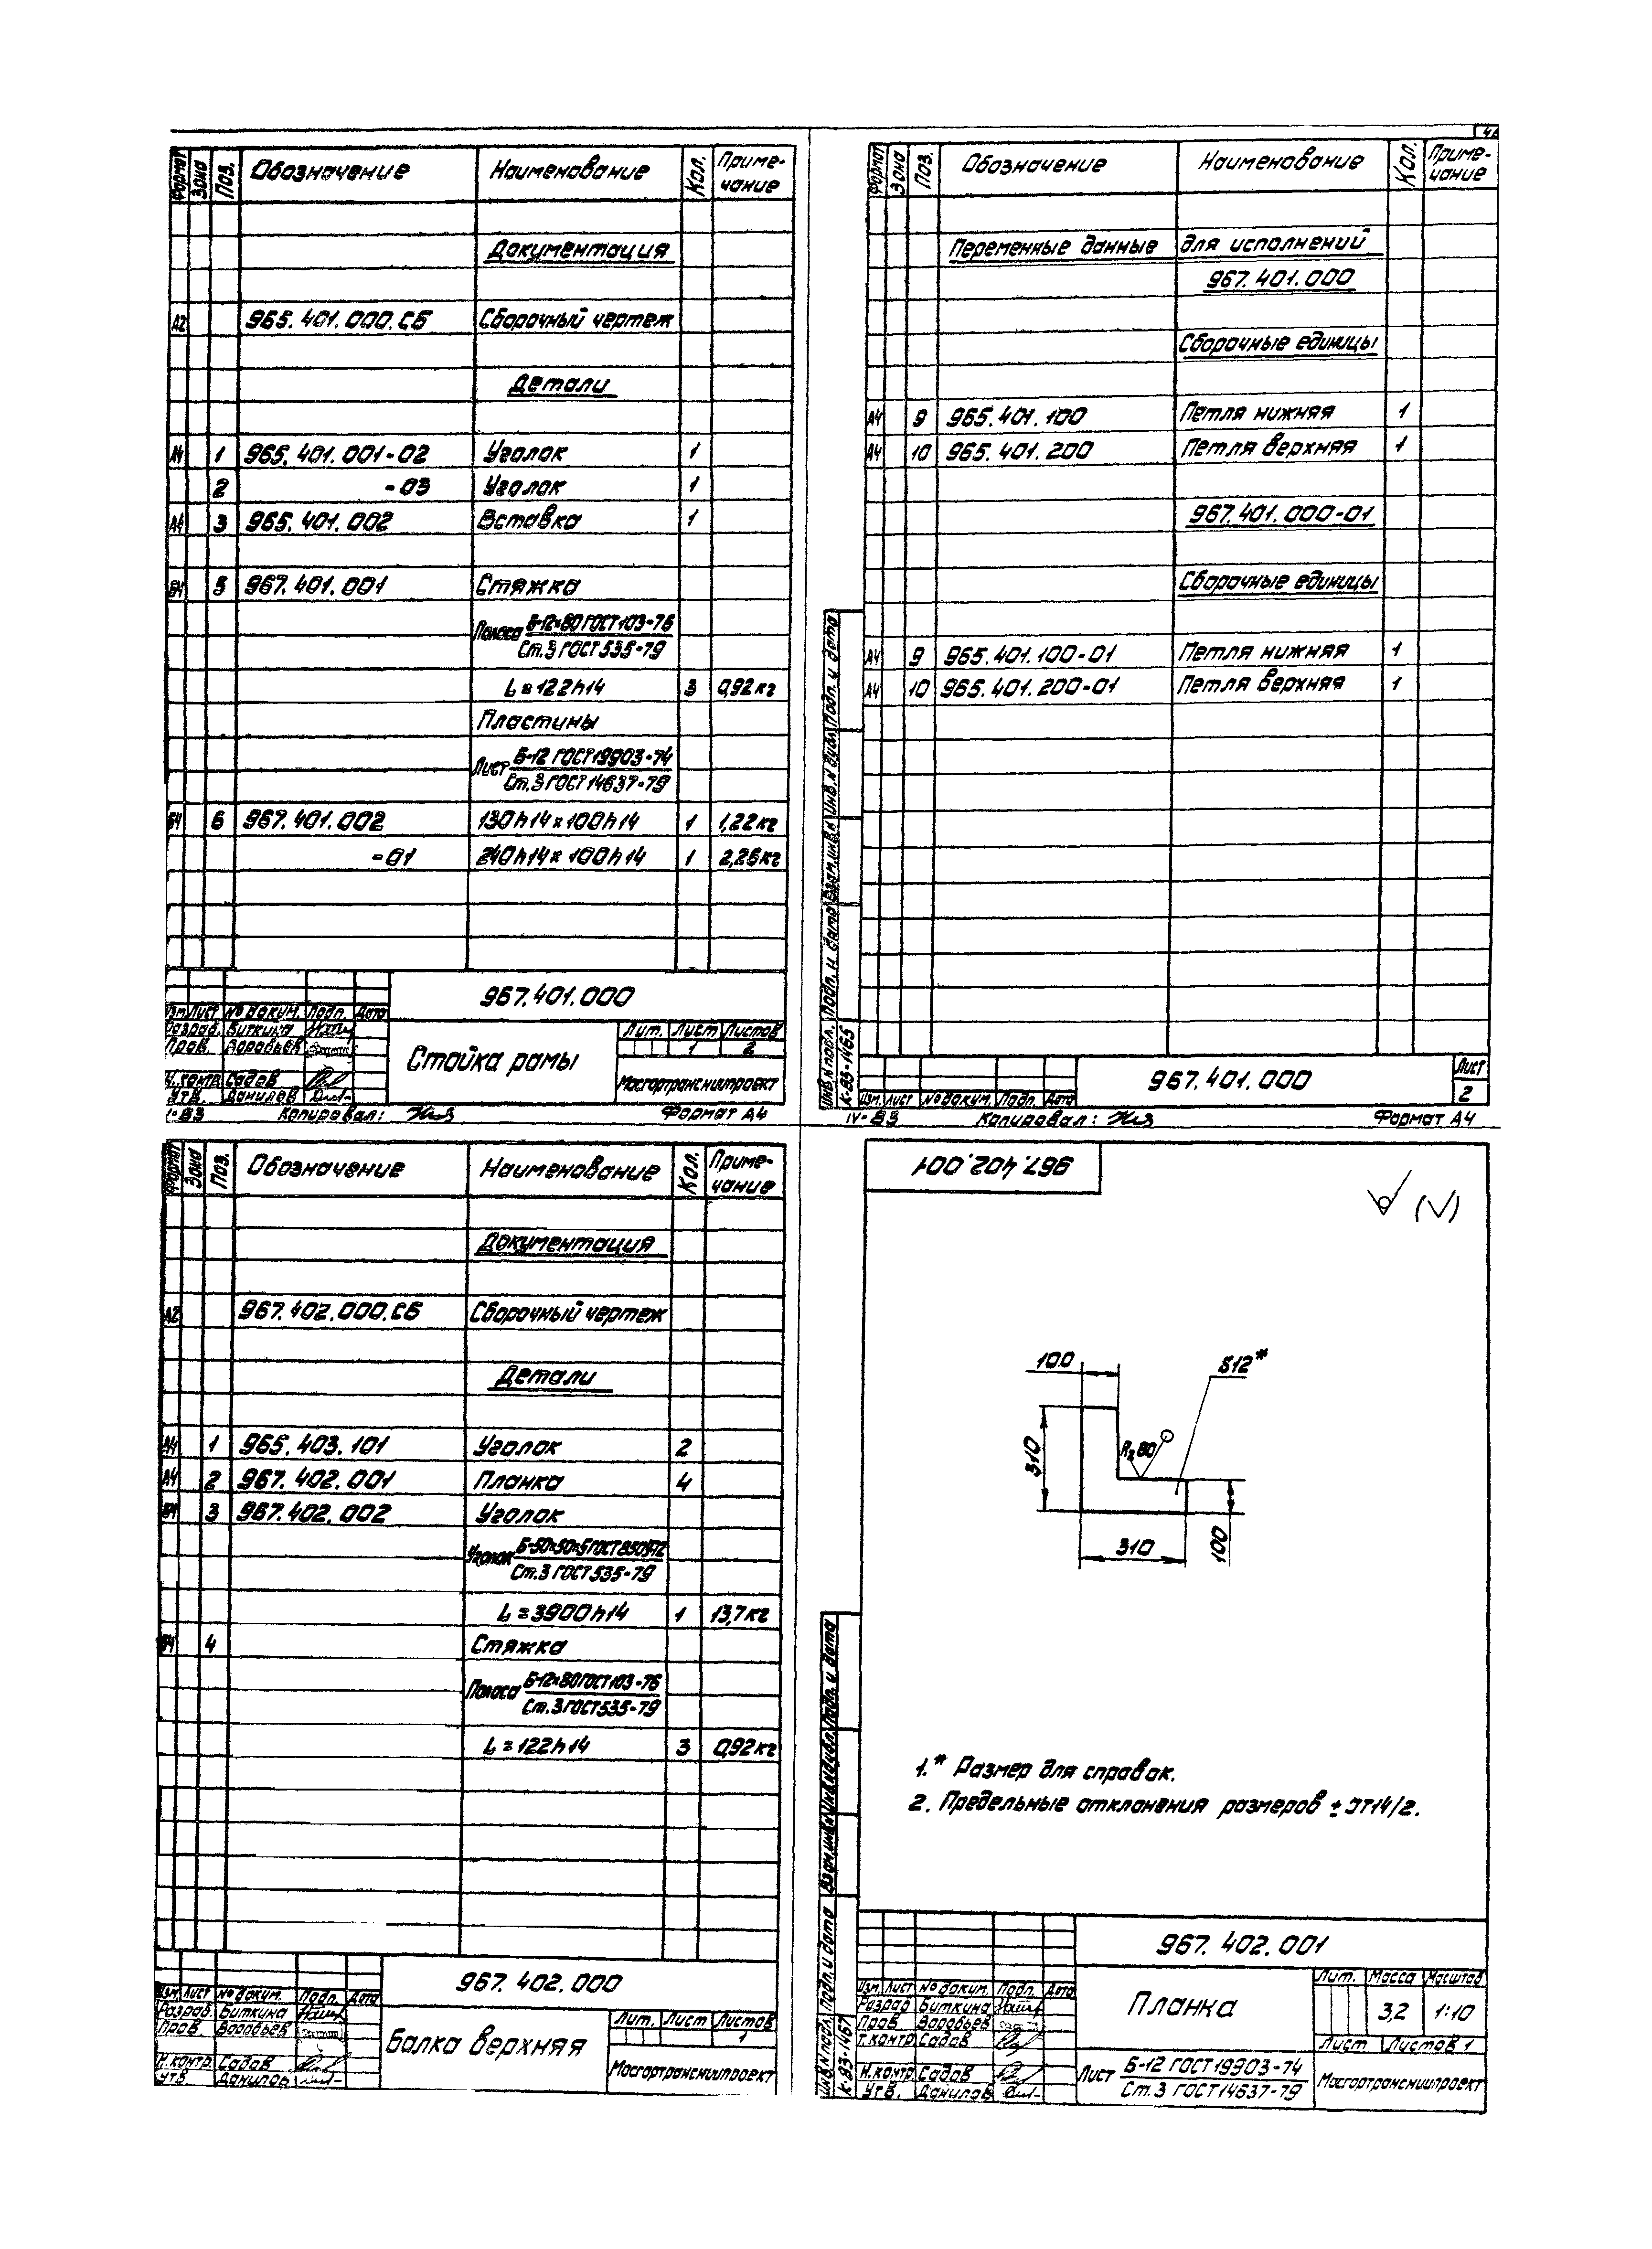 Формат Зона Поз. Обозначение Наименование Кол. Приме-
чание
Документация
А2 965.401.000.СБ Сборочный чертеж
Детали
А4 1 965.401.001-02 Уголок 1
2 -03 Уголок 1
А4 3 965.401.002 Вставка 1
БЧ 5 967.401.001 Стяжка
Полоса Б-12х80 ГОСТ 103-76
Ст.3 ГОСТ 535-79
L=122h14 3 0,92кг
Пластины
Лист Б-12 ГОСТ 19903-74
Ст.3 ГОСТ 14637-79
БЧ 6 967.401.002 130h14х100h14 1 1,22кг
-01 240h14х100h14 1 2,26кг
967.401.000
Изм. Лист № докум. Подп. Дата
Разраб. Биткина
Пров. Воробьев
Н.контр. Садов
Утв. Данилов
Стойка рамы
Лит. Лист Листов
1 2
Мосгортрансниипроект
Копировал: Формат А4
Формат Зона Поз. Обозначение Наименование Кол. Приме-
чание
Переменные данные для исполнений
967.401.000
Сборочные единицы
А4 9 965.401.100 Петля нижняя 1
А4 10 965.401.200 Петля верхняя 1
967.401.000-01
Сборочные единицы
А4 9 965.401.100-01 Петля нижняя 1
А4 10 965.401.200-01 Петля верхняя 1
Инв.№подл. Подп. и дата Взам.инв.№ Инв.№дубл. Подп. и дата
К-83-1465
Изм. Лист № докум. Подп. Дата
967.401.000
Лист
2
IV-83 Копировал: Формат А4
Формат Зона Поз. Обозначение Наименование Кол. Приме-
чание
Документация
А2 967.402.000.СБ Сборочный чертеж
Детали
А4 1 965.403.101 Уголок 2
А4 2 967.402.001 Планка 4
БЧ 3 967.402.002 Уголок
Уголок Б-50х50х5 ГОСТ 8509-72
Ст.3 ГОСТ 535-79
L=3900h14 1 13,7кг
БЧ 4 Стяжка
Полоса Б-12х80 ГОСТ 103-76
Ст.3 ГОСТ 535-79
L=122h14 3 0,92кг
967.402.000
Изм. Лист № докум. Подп. Дата
Разраб. Биткина
Пров. Воробьев
Н.контр. Садов
Утв. Данилов
Балка верхняя
Лит. Лист Листов
1
Мосгортрансниипроект
967.402.001
(√)
100
S12*
310
Rz80
310
100
1.* Размер для справок.
2. Предельные отклонения размеров ± IT14/2.
Инв.№подл. Подп. и дата Взам.инв.№ Инв.№дубл. Подп. и дата
К-83-1467
967.402.001
Изм. Лист № докум. Подп. Дата
Разраб. Биткина
Пров. Воробьев
Т.контр. Садов
Н.контр. Садов
Утв. Данилов
Планка
Лит. Масса Масштаб
3,2 1:10
Лист Листов 1
Лист Б-12 ГОСТ 19903-74
Ст.3 ГОСТ 14637-79
Мосгортрансниипроект